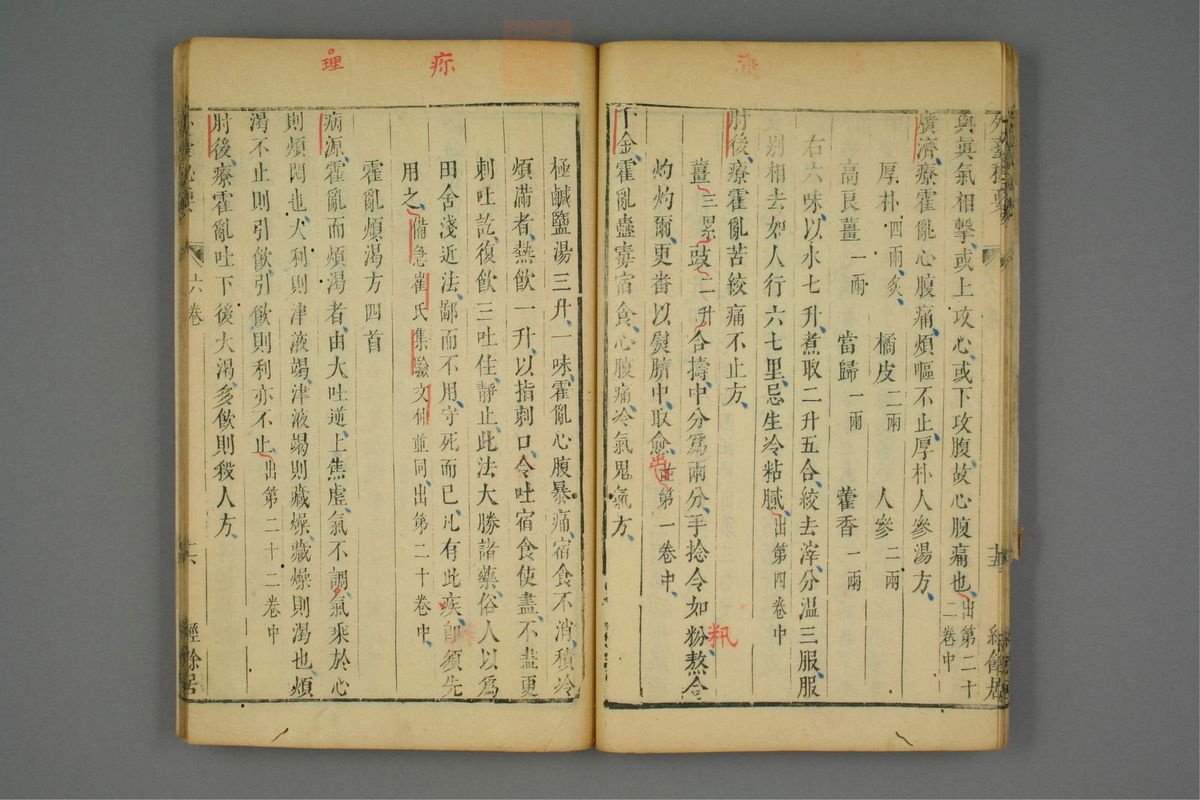 與眞氣相擊或上攻心或下攻腹故心腹痛也出第二十二卷中
廣濟療霍亂心腹痛煩嘔不止厚朴人參湯方
厚朴四兩炙 橘皮二兩 人參二兩
高良薑一兩 當歸一兩 藿香一兩
右六味以水七升煮取二升五合絞去滓分溫三服服
別相去如人行六七里忌生冷粘膩出第四卷中
肘後療霍亂苦絞痛不止方
薑三累豉二升合擣中分爲兩分手捻令如粉熬令
灼灼爾更番以熨臍中取愈並第一卷中
千金霍亂蠱毒宿食心腹痛冷氣鬼氣方
極鹹鹽湯三升一味霍亂心腹暴痛宿食不消積冷
煩滿者熱飲一升以指刺口令吐宿食使盡不盡更
刺吐訖復飲三吐住靜止此法大勝諸藥俗人以爲
田舍淺近法鄙而不用守死而已凡有此疾卽須先
用之備急崔氏集驗文仲並同出第二十卷中
霍亂煩渴方四首
病源霍亂而煩渴者由大吐逆上焦虛氣不調氣乘於心
則煩悶也大利則津液竭津液竭則藏燥藏燥則渴也煩
渴不止則引飲引飲則利亦不止出第二十二卷中
肘後療霍亂吐下後大渴多飲則殺人方
六卷
十六
經餘居
疢
理
出
籸